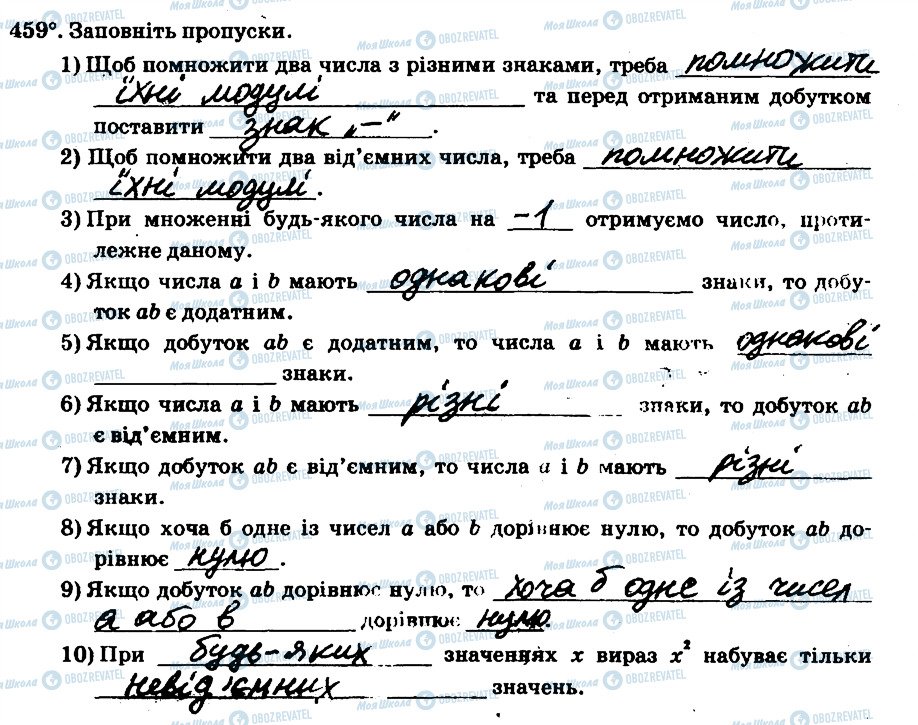 459°. Заповніть пропуски.
1) Щоб помножити два числа з різними знаками, треба помножити
їхні модулі та перед отриманим добутком
поставити знак „–“.
2) Щоб помножити два від’ємних числа, треба помножити
їхні модулі.
3) При множенні будь-якого числа на –1 отримуємо число, проти-
лежне даному.
4) Якщо числа a і b мають однакові знаки, то добу-
ток ab є додатним.
5) Якщо добуток ab є додатним, то числа a і b мають однакові
знаки.
6) Якщо числа a і b мають різні знаки, то добуток ab
є від’ємним.
7) Якщо добуток ab є від’ємним, то числа a і b мають різні
знаки.
8) Якщо хоча б одне із чисел a або b дорівнює нулю, то добуток ab до-
рівнює нулю.
9) Якщо добуток ab дорівнює нулю, то хоча б одне із чисел
а або в дорівнює нулю.
10) При будь-яких значеннях x вираз x² набуває тільки
невід'ємних значень.
МояШкола OBOZREVATEL